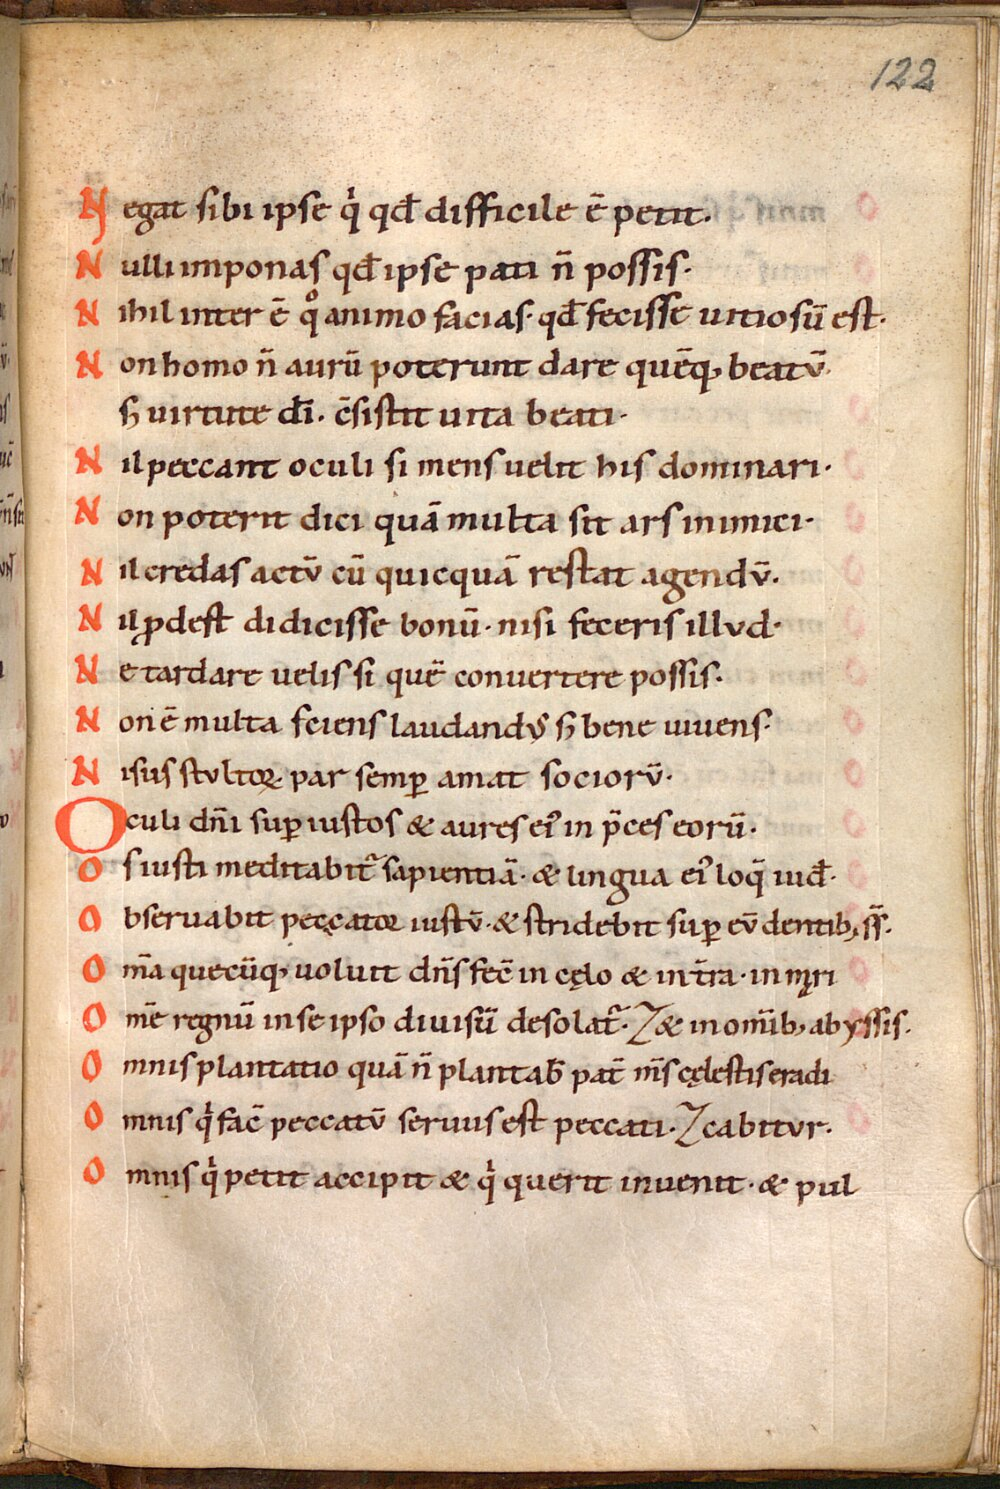 122
Negat sibi ipse q̇ qđ difficile ē petit.
Nulli imponas qđ ipse pati n̄ possis·
Nihil inter ē qͦ animo facias· qđ fecisse uitiosū est·
Non homo n̄ aurū poterunt dare quēq, beatv̄·
ꞩ uirtute dī· c̄sistit uita beati·
Nil peccant oculi si mens uelit his dominari·
Non poterit dici quā multa sit ars inimici·
Nil credas actv̄ cū quicquā restat agendv̄·
Nil ꝓdest didicisse bonū· nisi feceris illvd·
Ne tardare uelis si quē conuertere possis·
Non ē multa sciens laudandꝰ ꞩ bene uiuens·
Nisus stvltoꝝ par semꝑ amat sociorv̄·
Oculi dn̄i suꝑ iustos & aures ei᾽ in p̄ces eorū·
Os iusti meditabit᷑ sapientiā· & lingua ei᾽ loq̄ iuđ·
Obseruabit peccatoꝝ iustv̄· & stridebit suꝑ ev̄ dentib, ss̄·
Om̄a quecūq, uoluit dn̄s fec̄ in cęlo & in t̄ra· in mari
Om̄e regnū in se ipso diuisū desolat᷑· & in om̄ib, abyssis·
Omnis plantatio quā n̄ plantab̄ pat̄ m̄s cęlestis eradi
Omnis q̇ fac̄ peccatv̄ seruus est peccati· cabitvr·
Omnis q̇ petit accipit & q̇ querit inuenit· & pul